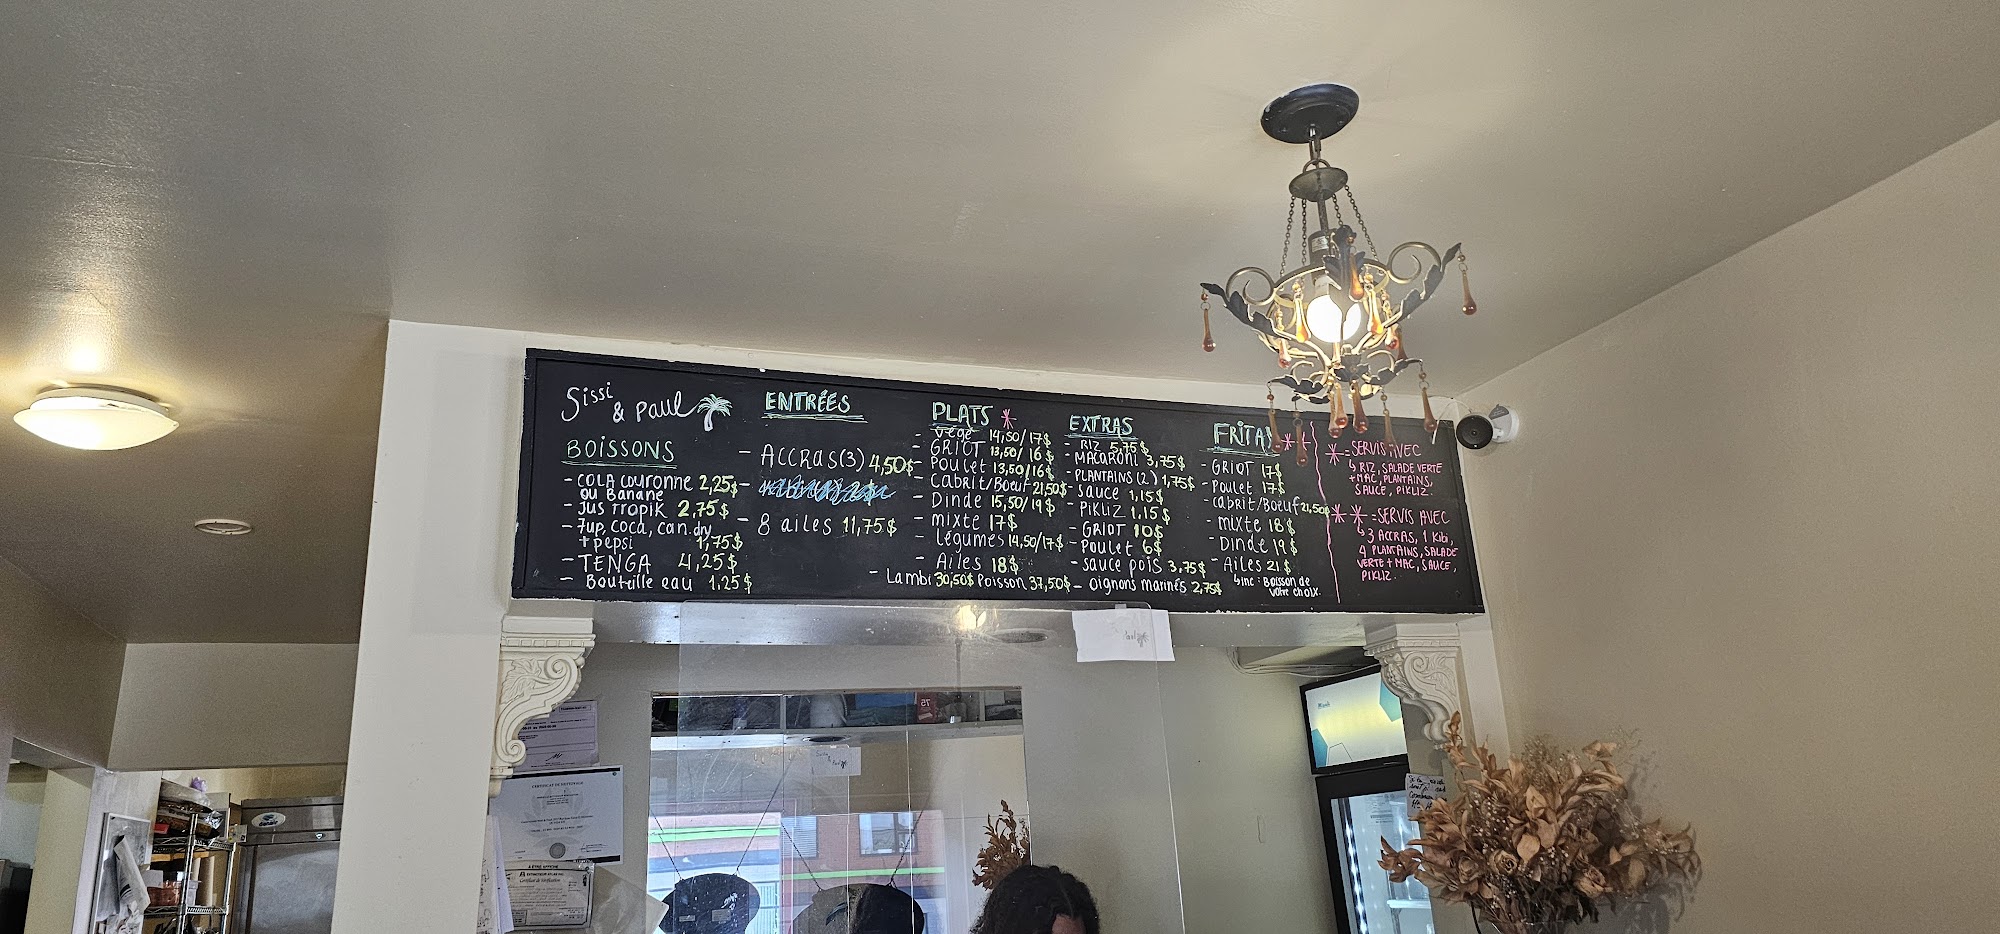 Sissi
& Paul
BOISSONS
- COLA COURONNE 2,25$
OU Banane
- JUS TROPIK 2,75$
- 7up, COCA, CAN.DRY
+ PEPSI 1,75$
- TENGA 4,25$
- Bouteille eau 1.25$
ENTRÉES
- ACCRAS(3) 4,50$
- 8 ailes 11,75$
PLATS *
- Végé 14,50/17$
- GRIOT 13,50/16$
- Poulet 13,50/16$
- Cabrit/Boeuf 21,50$
- Dinde 15,50/19$
- mixte 17$
- légumes 14,50/17$
- Ailes 18$
- Lambi 30,50$ Poisson 37,50$
EXTRAS
- RIZ 5,75$
- MACARONI 3,75$
- PLANTAINS (2) 1,75$
- Sauce 1,15$
- PIKLIZ 1,15$
- GRIOT 10$
- Poulet 6$
- Sauce pois 3,75$
- Oignons marinés 2,75$
FRITAY **
- GRIOT 17$
- Poulet 17$
- Cabrit/Boeuf 21,50$
- mixte 18$
- Dinde 19$
- Ailes 21$
↳ inc: Boisson de
votre choix.
* = SERVIS AVEC
↳ RIZ, SALADE VERTE
+ MAC, PLANTAINS,
SAUCE, PIKLIZ.
** = SERVIS AVEC
↳ 3 ACCRAS, 1 Kibi,
4 PLANTAINS, SALADE
VERTE + MAC, SAUCE,
PIKLIZ.